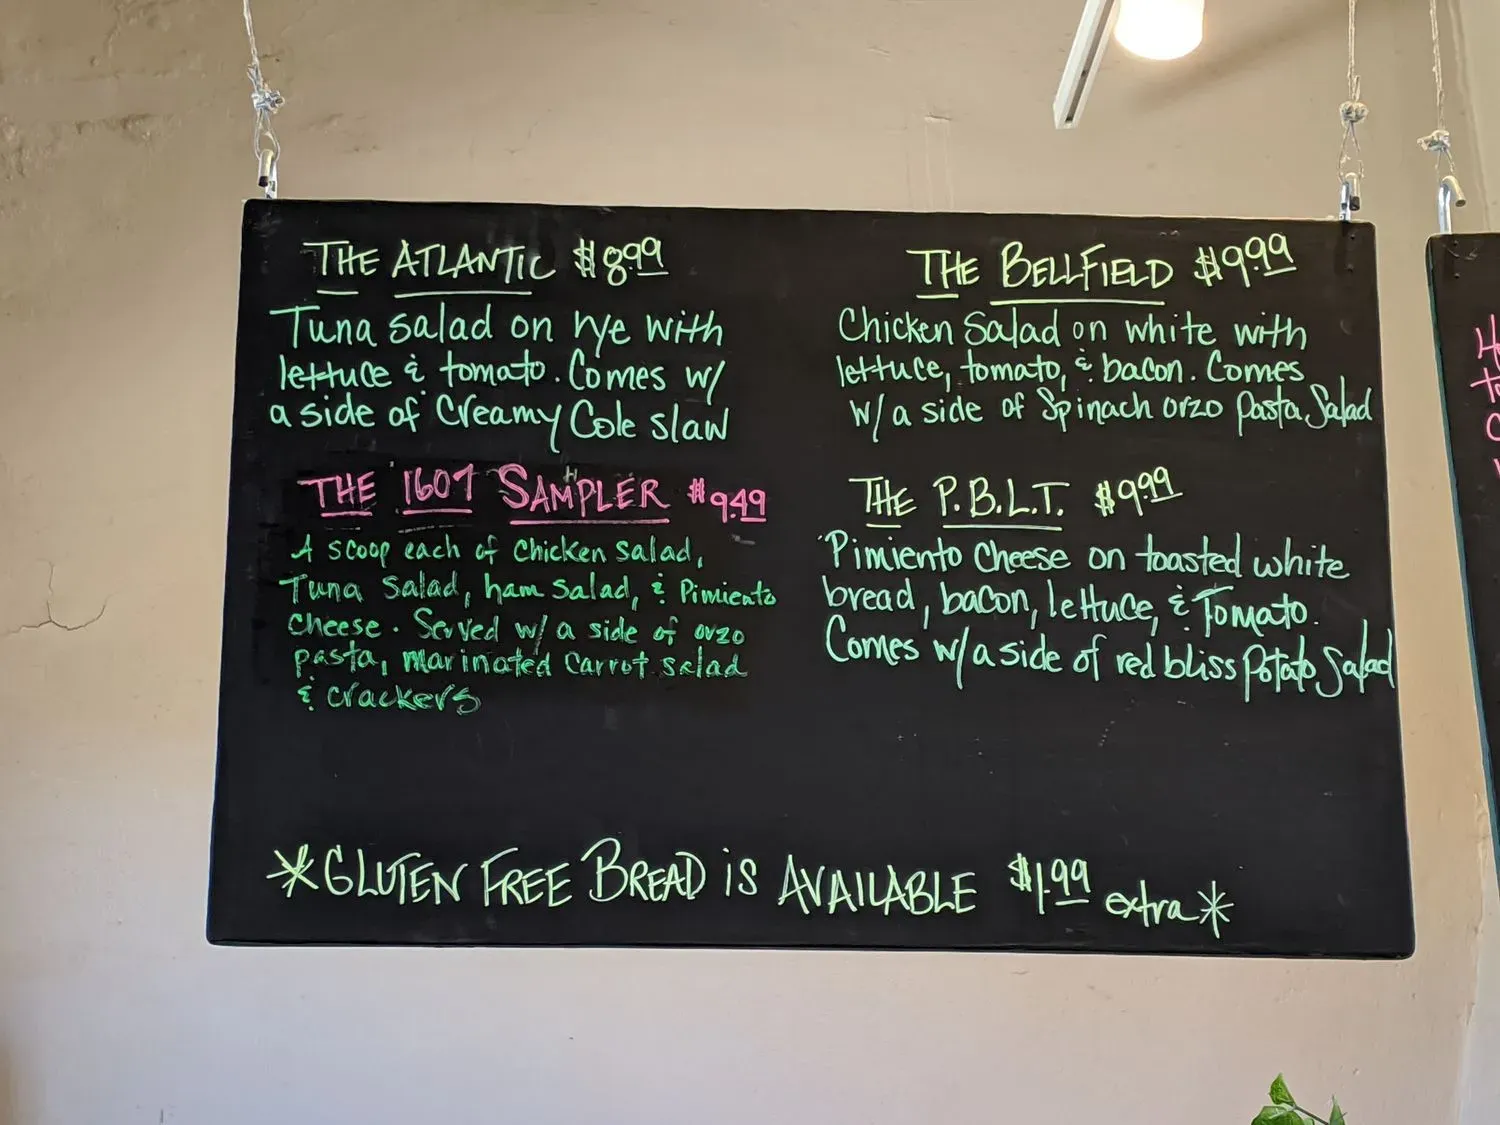 THE ATLANTIC $8.99
Tuna salad on rye with
lettuce & tomato. Comes w/
a side of Creamy Cole slaw
THE 1607 SAMPLER $9.49
A scoop each of Chicken salad,
Tuna Salad, ham salad, & Pimiento
cheese. Served w/ a side of orzo
pasta, marinated Carrot salad
& crackers
THE BELLFIELD $9.99
Chicken Salad on white with
lettuce, tomato, & bacon. Comes
w/ a side of Spinach orzo pasta Salad
THE P.B.L.T. $9.99
Pimiento Cheese on toasted white
bread, bacon, lettuce, & Tomato.
Comes w/ a side of red bliss Potato Salad
*GLUTEN FREE BREAD is AVAILABLE $1.99 extra*